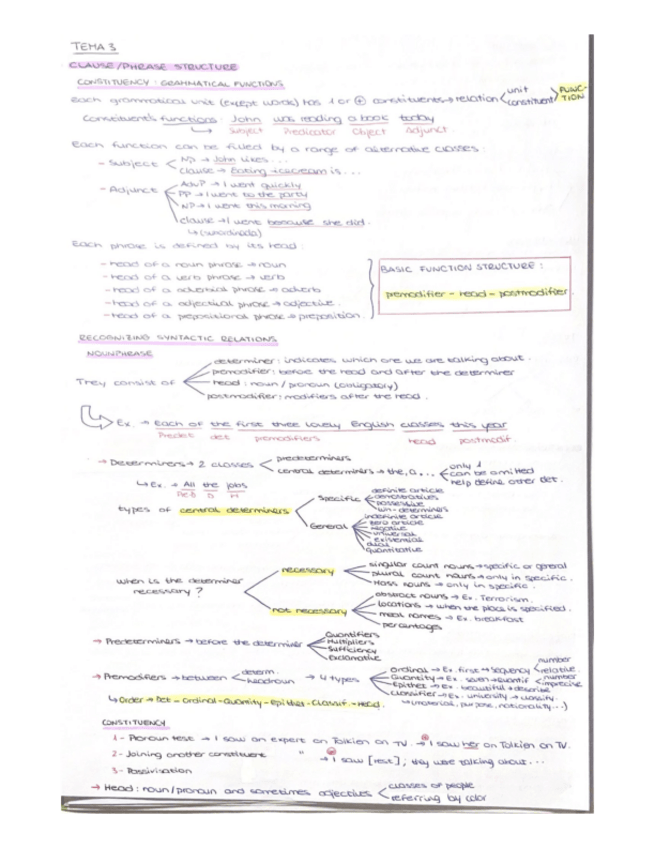 TEMA 3
CLAUSE/PHRASE STRUCTURE
CONSTITUENCY: GRAMMATICAL FUNCTIONS
Each grammatical unit (except words) has 1 or ⊕ constituents → relation < unit constituent > FUNC-TION
Constituents functions: John was reading a book today
Subject Predicator Object Adjunct
Each function can be filled by a range of alternative CLASSES:
- Subject < NP → John likes...
Clause → Eating icecream is...
- Adjunct < AdvP → I went quickly
PP → I went to the party
NP → I went this morning
clause → I went because she did.
↳ (subordinada)
Each phrase is defined by its head:
- head of a noun phrase → noun
- head of a verb phrase → verb
- head of a adverbial phrase → adverb
- head of a adjectival phrase → adjective.
- head of a prepositional phrase → preposition.
BASIC FUNCTION STRUCTURE:
premodifier - head - postmodifier
RECOGNIZING SYNTACTIC RELATIONS
NOUNPHRASE
They consist of < determiner: indicates which one we are talking about.
premodifier: before the head and after the determiner
head: noun / pronoun (obligatory)
postmodifier: modifiers after the head.
Ex. → Each of the first three lovely English classes this year
Predet det premodifiers head postmodif.
→ Determiners → 2 classes < predeterminers
central determiners → the, a... < only 1
can be omitted
help define other det.
↳ Ex. → All the jobs
Pre-D D H
types of central determiners < Specific < definite article
demonstratives
possessive
wh- determiners
General < indefinite article
zero article
negative
universal
existential
dual
quantitative
when is the determiner necessary? < necessary < singular count nouns → specific or general
plural count nouns → only in specific.
Mass nouns → only in specific.
not necessary < abstract nouns → Ex. Terrorism.
locations → when the place is specified.
meal names → Ex. breakfast
percentages
→ Predeterminers → before the determiner < Quantifiers
Multipliers
Sufficiency
Exclamative
→ Premodifiers → between < determ.
headnoun → 4 types < Ordinal → Ex. first → sequency < number
relative.
Quantity → Ex. seven → quantif < number
imprecise
Epithet → Ex. beautiful → describe
Classifier → Ex. university → classify.
↳ (material, purpose, nationality...)
↳ Order → Det - Ordinal - Quantity - Epithet - Classif. - Head.
CONSTITUENCY
1- Pronoun test → I saw an expert on Tolkien on TV. → I saw her on Tolkien on TV.
2- Joining another constituent " → I saw [rest]; they were talking about...
3- Passivisation
→ Head: noun/pronoun and sometimes adjectives < classes of people
referring by color